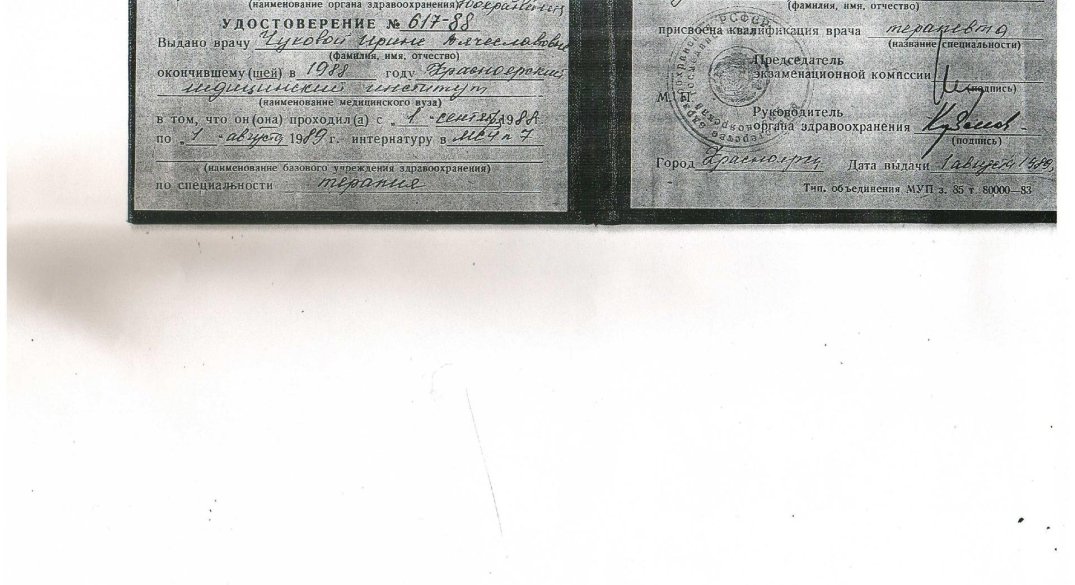 (наименование органа здравоохранения)
УДОСТОВЕРЕНИЕ № 617-88
Выдано врачу Чуковой Ирине Вячеславовне
(фамилия, имя, отчество)
окончившему (шей) в 1988 году Красноярский
медицинский институт
(наименование медицинского вуза)
в том, что он (она) проходил (а) с „1“ сентяб 1988
по „1“ августа 1989 г. интернатуру в МСЧ № 7
(наименование базового учреждения здравоохранения)
по специальности терапия
(фамилия, имя, отчество)
присвоена квалификация врача терапевта
(название специальности)
Председатель
экзаменационной комиссии
(подпись)
М. П.
Руководитель
органа здравоохранения
(подпись)
Город Красноярск Дата выдачи 1 августа 1989
Тип. объединения МУП з. 85 т. 80000—83